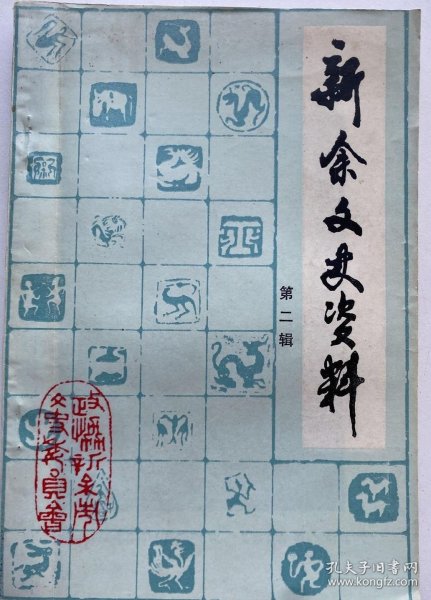 新余文史资料
第二辑
政协新余市
文史委员会
孔夫子旧书网
www.kongfz.com